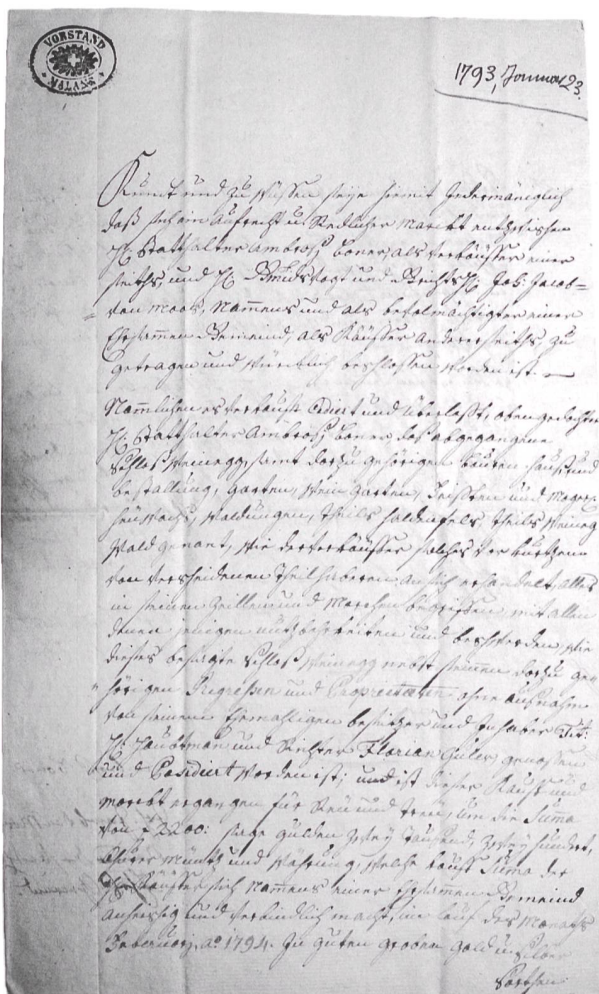 VORSTAND
MALANS
1793, Januar 23.
Kunt und zu wüssen seye hiermit Jedermäniglich
daß ein Aufrecht u. Redlicher Marckt entzwischen
H. Statthalter Ambrosj Boner, als Verkäüffer einer
seiths, und H. Bundsvogt und H. Joh: Jacob
von Moos, Nammens und als befolmächtigter einer
Ehrsammen Gemeind, als Käüffer anderseiths, zu
getragen und würcklich beschlossen worden ist.
Nammlichen es verkauft Cediert und überlaßt, obengedachter
H. Statthalter Ambrosj Boner, das abgegangene
Schloß Weinegg, samt darzu gehörigen Bauten, Hauß und
bestallung, Garten, Wein Garten, und Mager
heüwachs, Waldungen, theils Haldenfels, theils Weinegg
Wald genant, wie der Verkäüffer solches vor kurtzem
von verscheidenen Theilhaberen an sich erhandelt, alles
in seinen Zillen und Marchen begriffen, mit allen
denen jenigen nutzbahrkeiten und beschwerden, wie
dieses besagte Schloß Weinegg nebst seinen darzu ge
hörigen Regressen und ohne Außnahm
von seinem Ehemahligen besitzer und Inhaber Tit:
H. Haubtman und Richter Florian Guler, genossen
und Possidiert worden ist; und ist dieser Kauff und
Marckt ergangen für Steü und treü, um die Suma
von f 2200: sage gulden Zwey Tausend, Zwey hundert,
Churer Müntz und Währung, welche Kauff Suma der
H. Käüffer sich Nammens einer Ehrsammen Gemeind
anheischig und verbindlich macht, im lauf des Monaths
Februarj, aº 1794. In guten groben Gold u. Silber
Sorthen